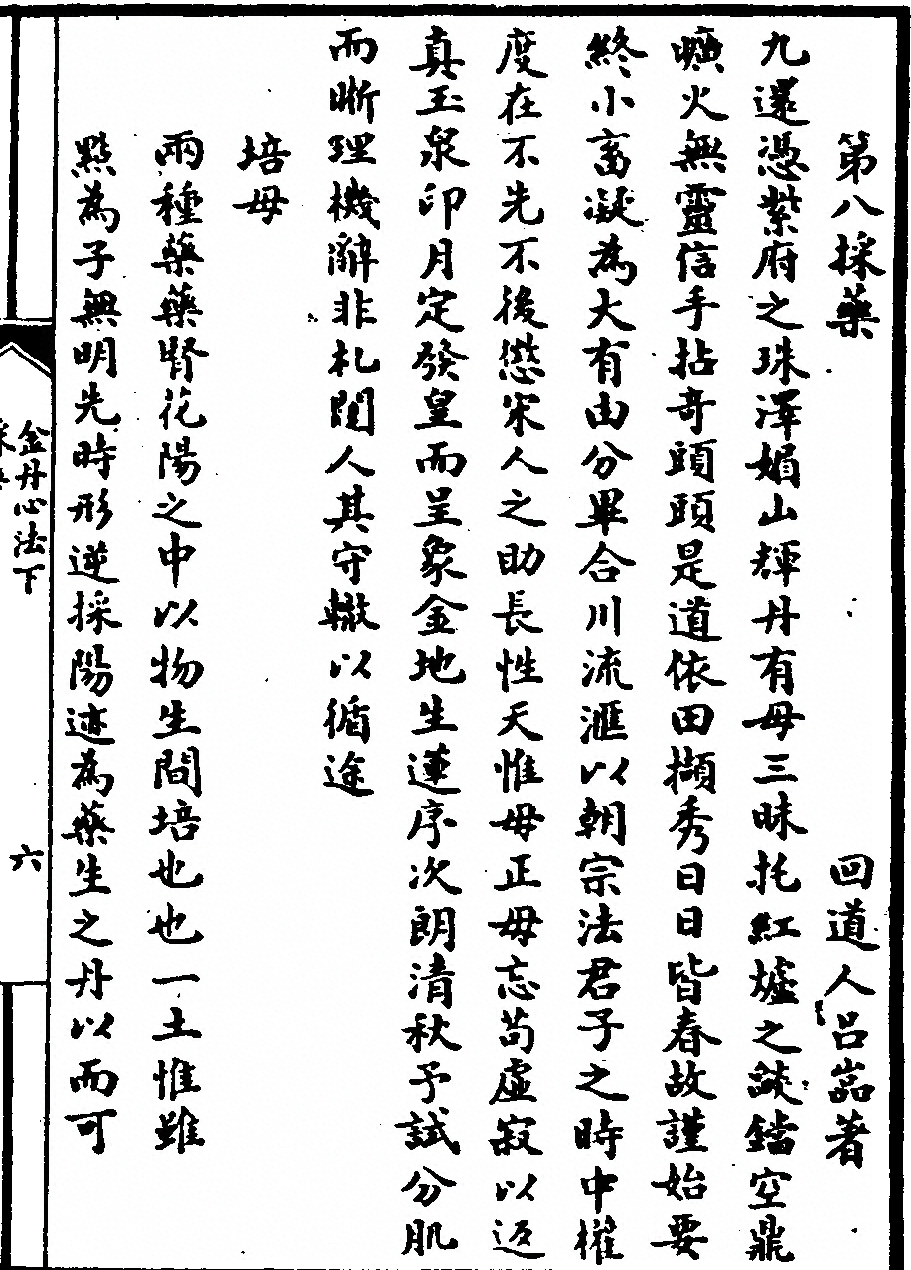 第八採藥 回道人呂嵓著
九還憑紫府之珠澤媚山輝丹有母三昧托紅爐之談鐺空鼎
曠火無靈信手拈奇頭頭是道依田擷秀日日皆春故謹始要
終小畜凝為大有由分畢合川流滙以朝宗法君子之時中權
度在不先不後愆宋人之助長性天惟毋正毋忘苟虛寂以返
真玉泉印月定發皇而呈象金地生蓮序次朗清秋予試分肌
而晰理機辭非札闥人其守轍以循途
培母
兩種藥藥腎花陽之中以物生間培也也一土惟雖
點為子無明先時形逆採陽迹為藥生之丹以而可
金丹心法下
六